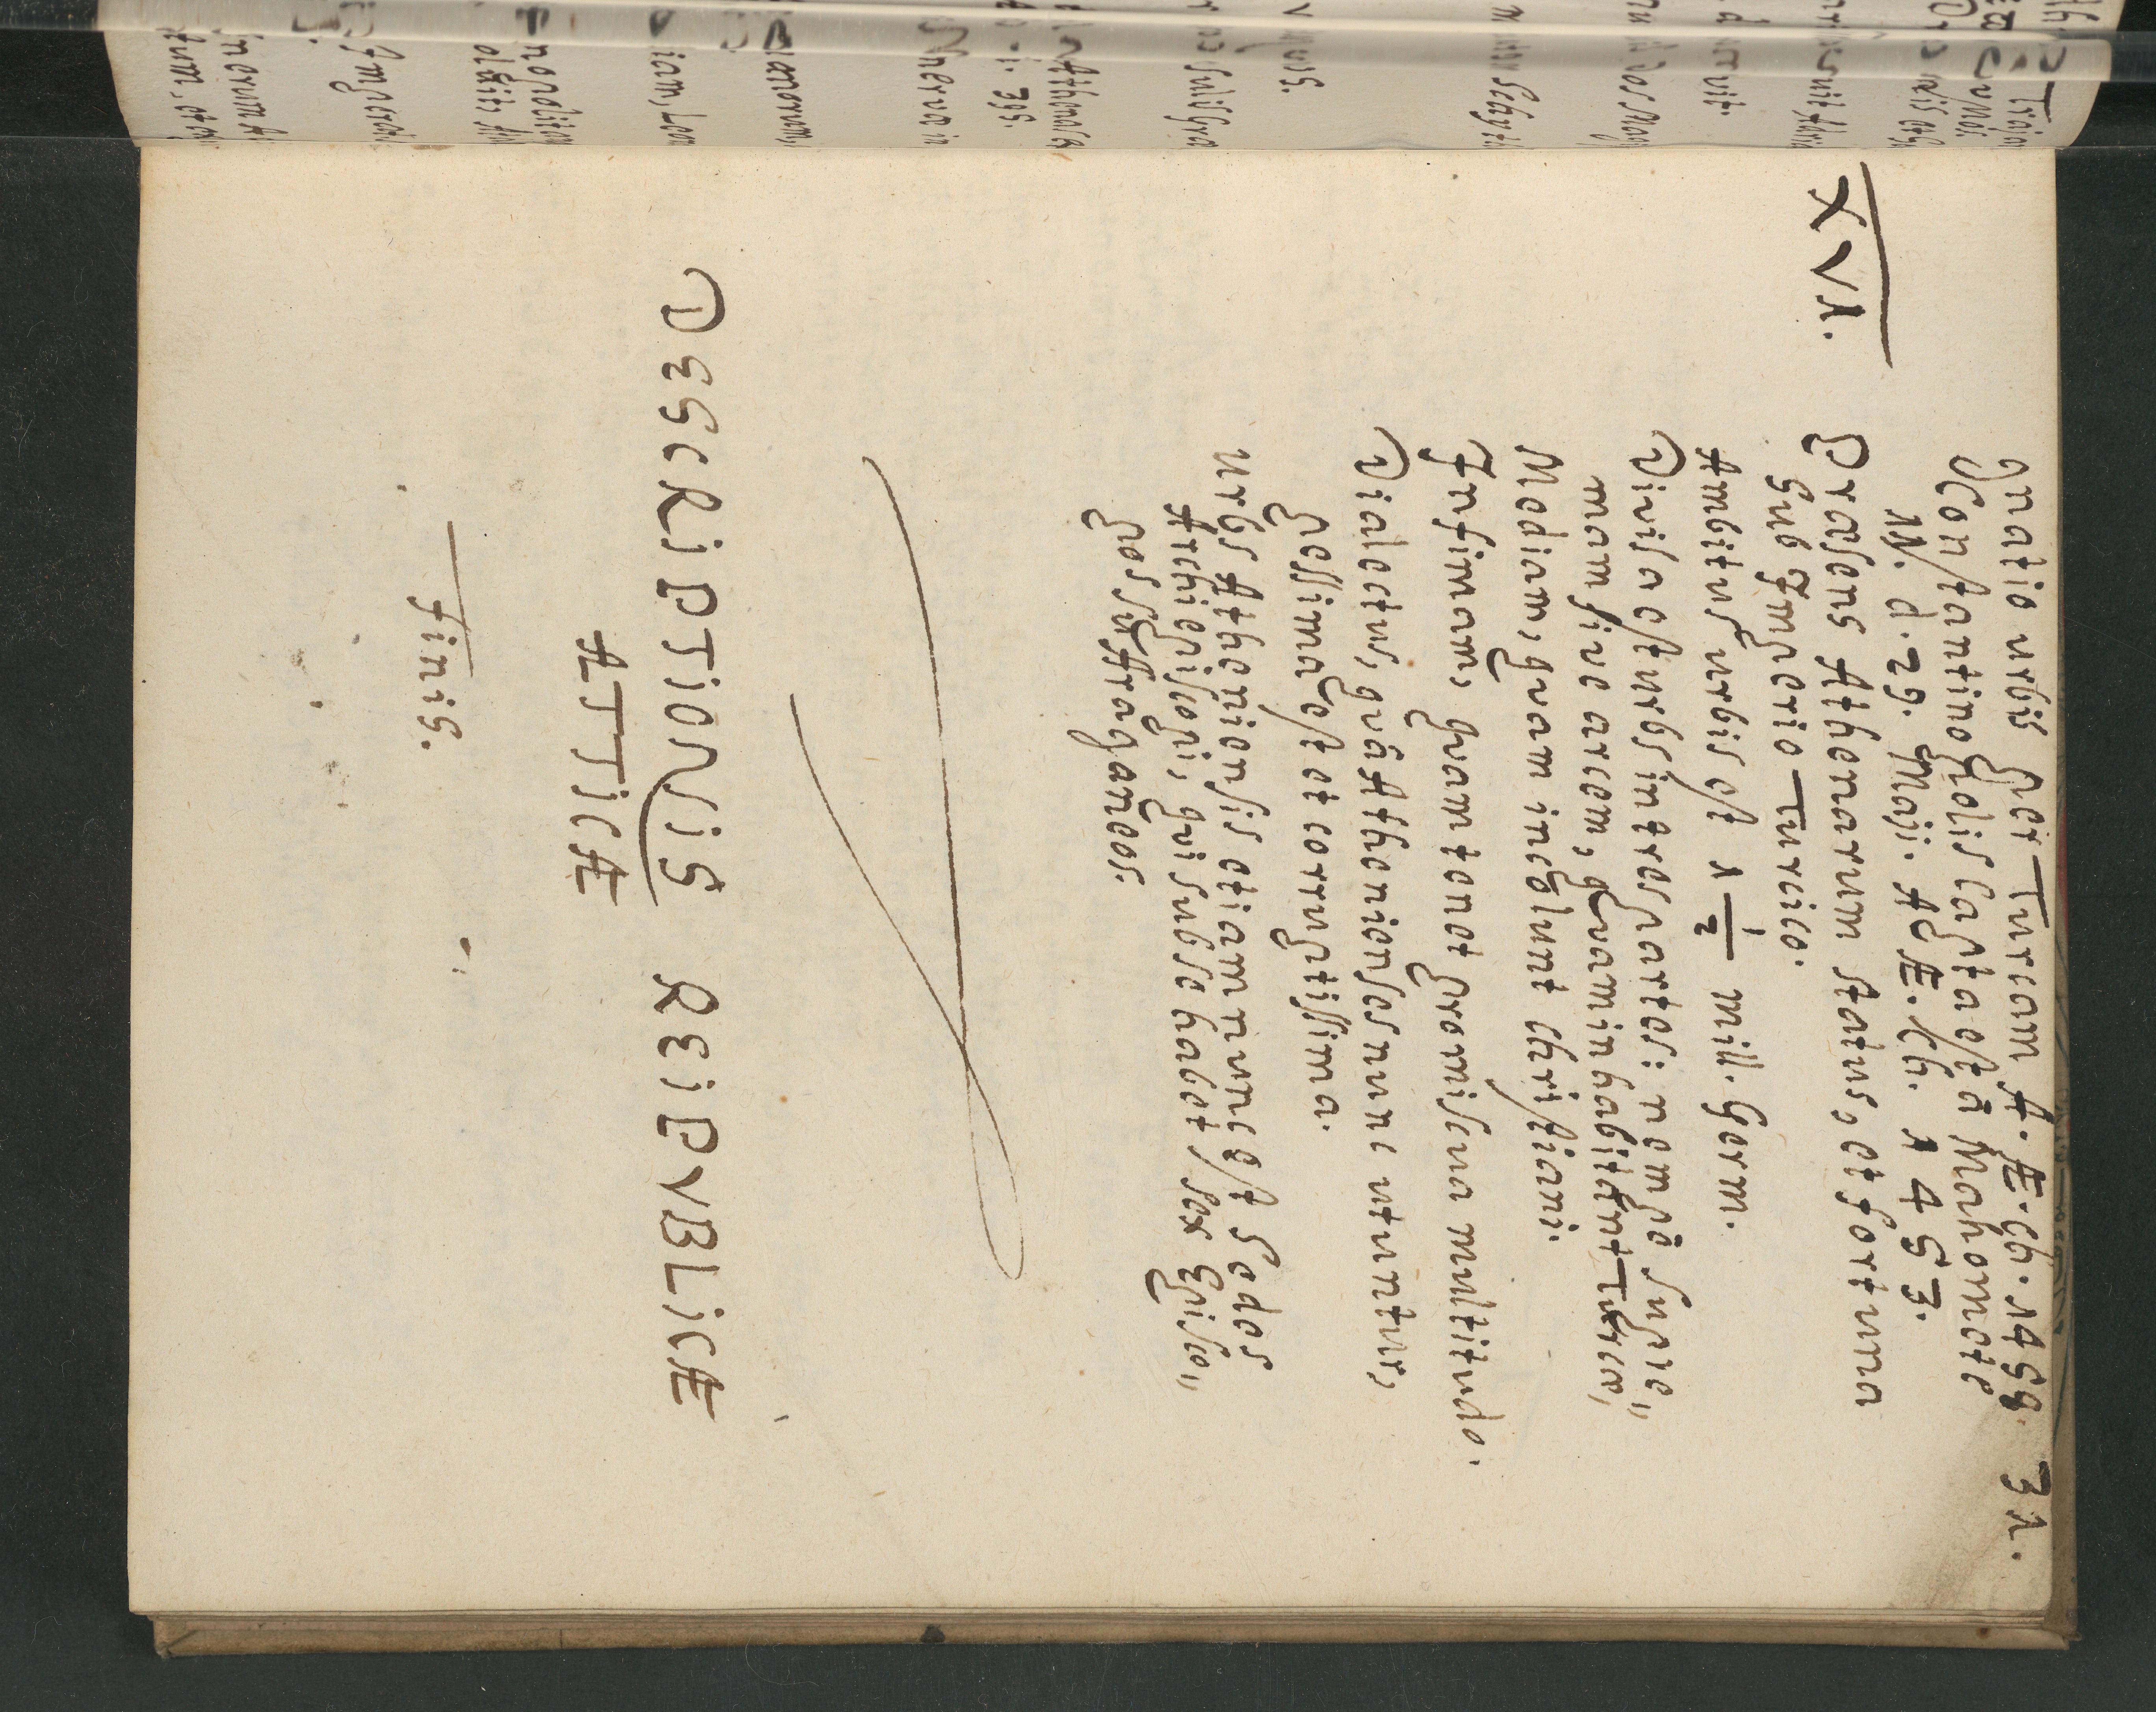 31.
urbis per Turcam A. Æ. Ch. 1458.
Constantinopolis capta est à Mahomete
II. d. 29. Maji. A. Æ. Ch. 1453.
XVI.
Præsens Athenarum status, et fortuna
sub Imperio Turcico.
Ambitus urbis est 1 1/2 mill. Germ.
Divisa est urbs in tres partes: nempè supre=
mam sive arcem, quam inhabitant Turcæ,
Mediam, quam incolunt Christiani.
Infimam, quam tenet promiscua multitudo.
Dialectus, quâ Athenienses nunc utuntur,
pessima est et corruptissima.
Urbs Atheniensis etiamnum est Sedes
Archiepiscopi, qui sub se habet sex Episco=
pos suffraganeos.
DESCRIPTIONIS REIPUBLICÆ
ATTICÆ
finis.